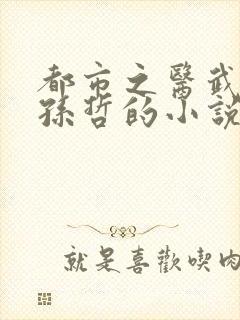 都市之醫武
孫哲的小說
就是喜歡喫肉